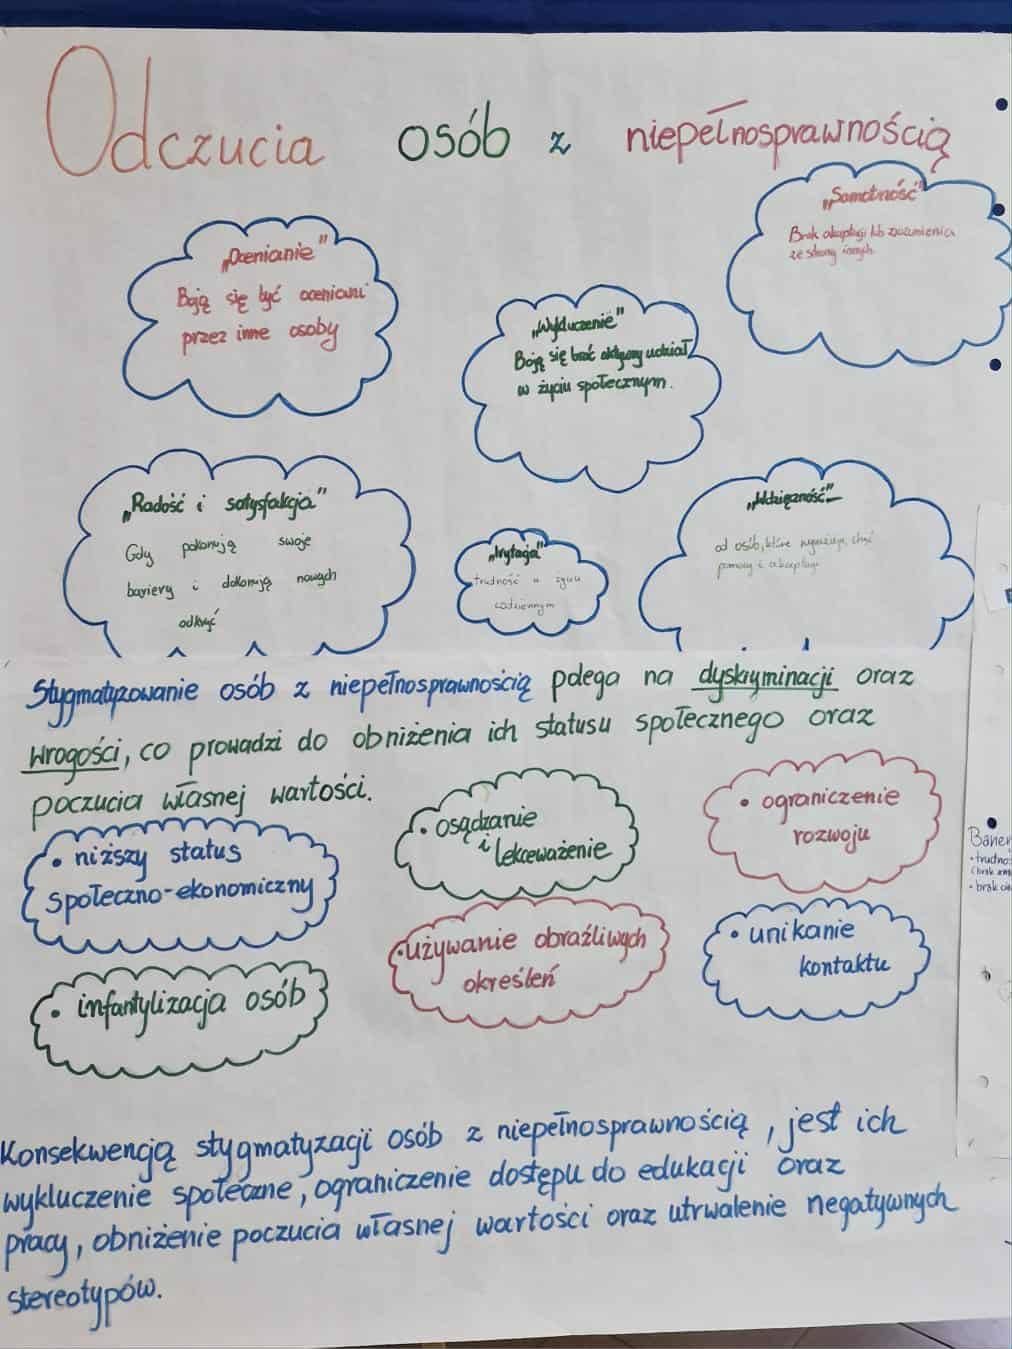 Odczucia osób z niepełnosprawnością
„Ocenianie"
Boją się być oceniani
przez inne osoby
„Wykluczenie"
Boją się brać aktywny udział
w życiu społecznym.
„Samotność"
Brak akceptacji lub zrozumienia
ze strony innych
„Radość i satysfakcja"
Gdy pokonują swoje
bariery i dokonują nowych
odkryć
„Irytacja"
trudność w życiu
codziennym
„Wdzięczność"
od osób, które wyrażają chęć
pomocy i akceptacji
Stygmatyzowanie osób z niepełnosprawnością polega na dyskryminacji oraz
wrogości, co prowadzi do obniżenia ich statusu społecznego oraz
poczucia własnej wartości.
• niższy status
społeczno-ekonomiczny
• osądzanie
i lekceważenie
• ograniczenie
rozwoju
• infantylizacja osób
• używanie obraźliwych
określeń
• unikanie
kontaktu
Konsekwencją stygmatyzacji osób z niepełnosprawnością, jest ich
wykluczenie społeczne, ograniczenie dostępu do edukacji oraz
pracy, obniżenie poczucia własnej wartości oraz utrwalenie negatywnych
stereotypów.
• brak